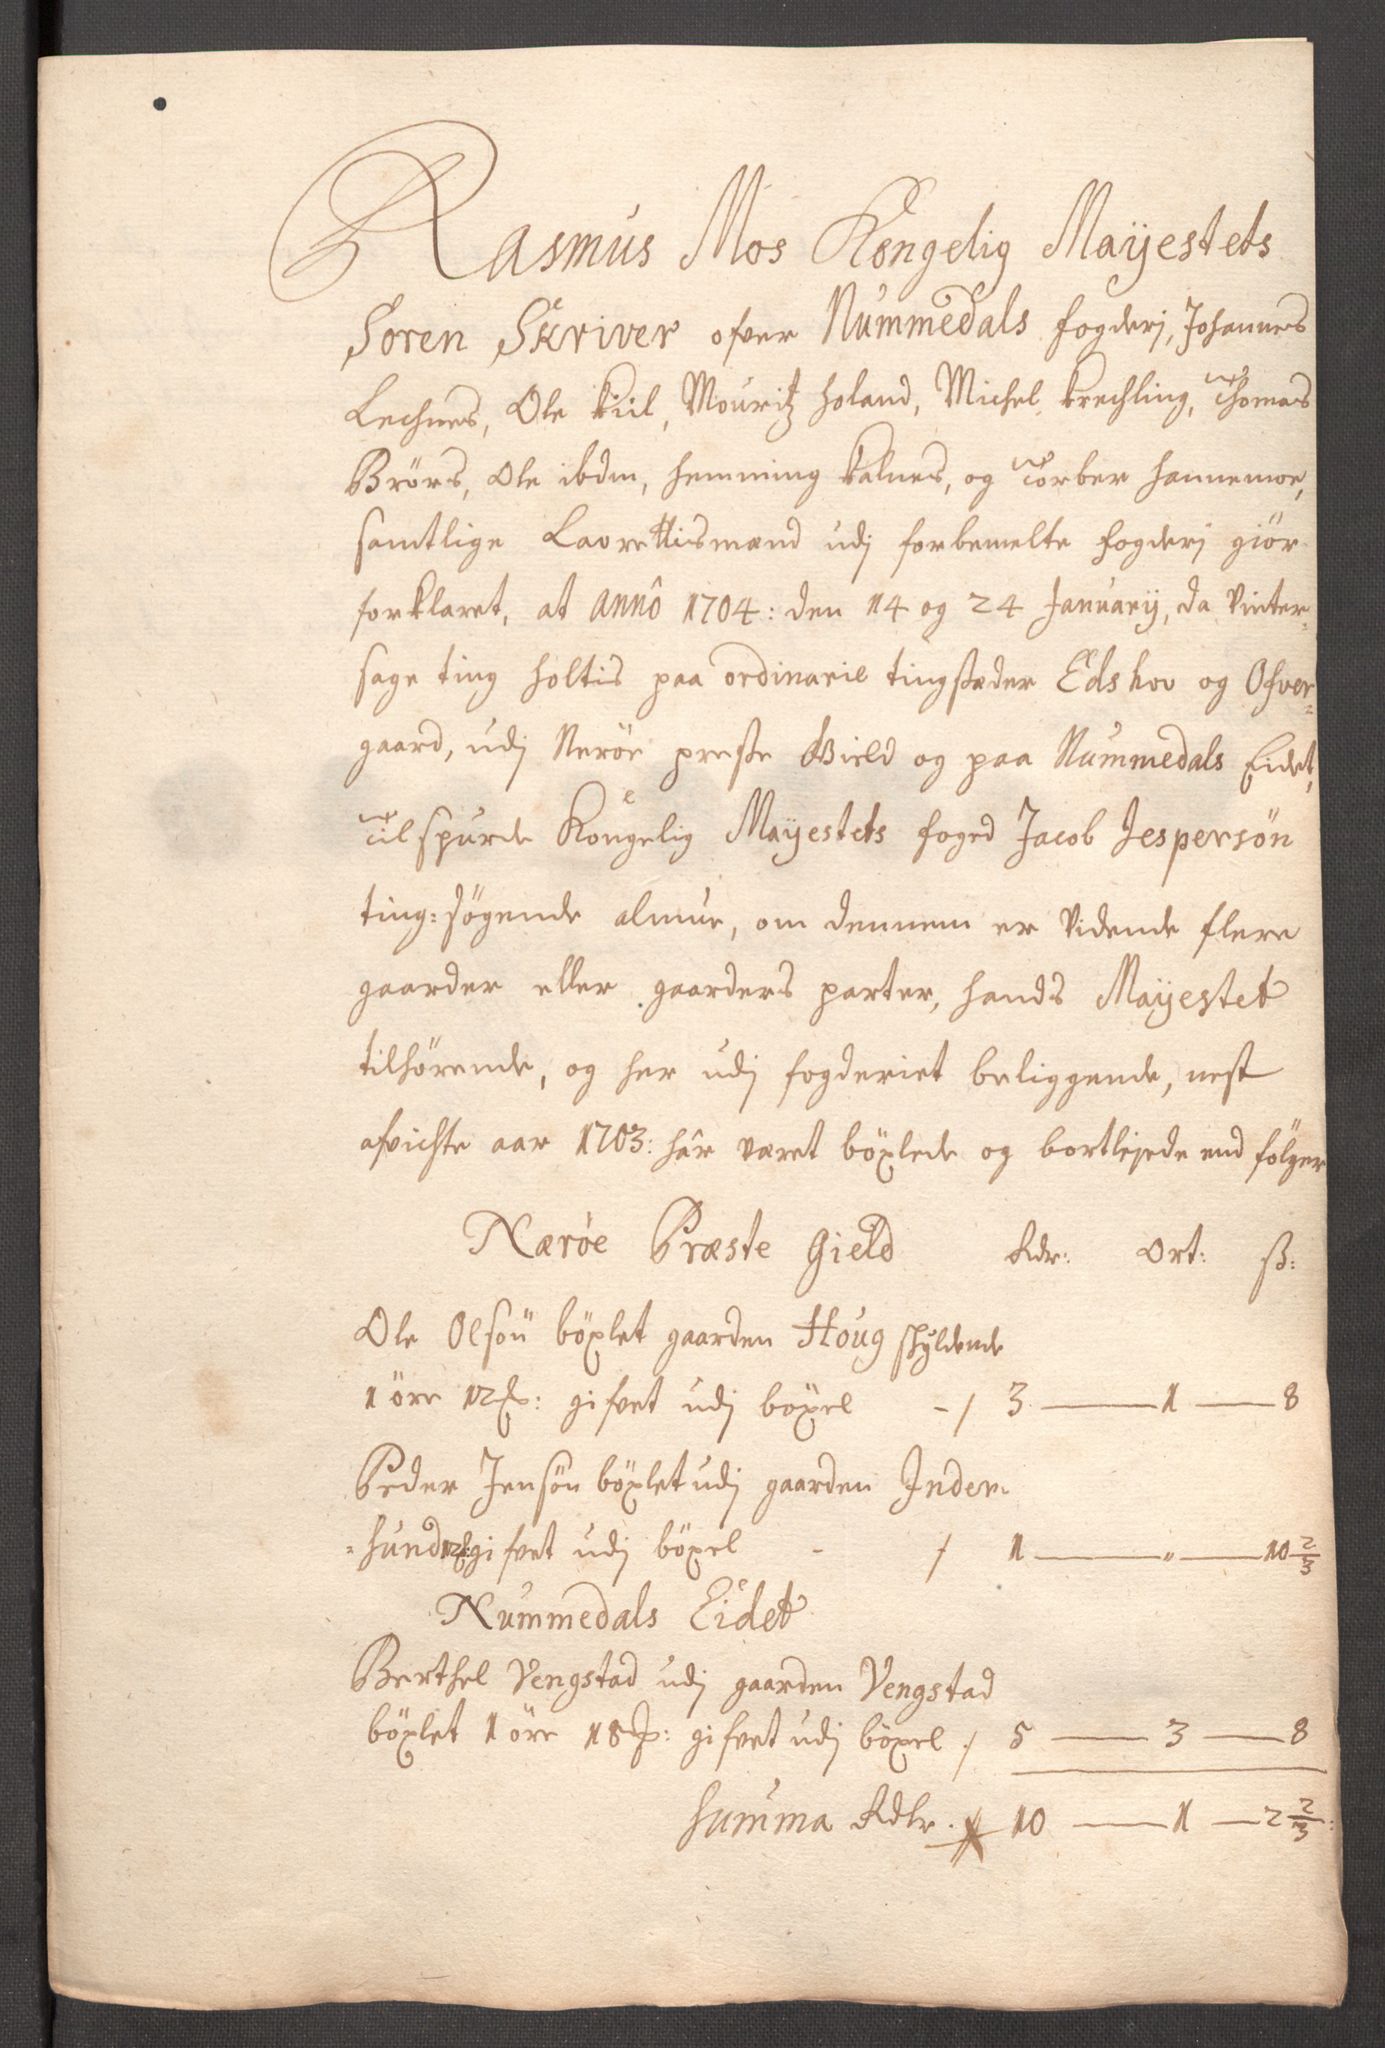 Rasmus Mos Kongelig Maÿestets
Soren Skriver ofver Nummedals fogderj, Johannes
Lechnes, Ole Kiil, Mouritz Holand, Michel Krechling, Thomas
Brörs, Ole ibdm, Hemming Kalnes, og Torber Hannemoe,
samtlige Laurettismænd udj forbemelte fogderj giör
forklaret, at Anno 1704: den 14 og 24 Januarij, da Vinter-
sage ting holtis paa ordinarie tingstæder Edshov og Ofver-
gaard, udj Neröe preste Gield og paa Nummedals Eidet,
Tilspurde Kongelig Maÿestets foged Jacob Jespersön
ting: søgende almue, om dennem er vidende flere
gaarder eller gaarders parter, hands Maÿestet
tilhörende, og her udj fogderiet beliggende, nest
afvichte aar 1703: här været böxlede og bortlejede end fölger
Næröe Præste Gield Rdr: Ort: ß:
Ole Olsön böxlet gaarden Houg skyldende
1 öre 12 : gifvet udj böxel -/ 3 — 1 — 8
Peder Jensön böxlet udj gaarden Inder-
-hund 12 gifvet udj böxel - / 1 — " — 10 2/3
Nummedals Eidet
Berthel Vengstad udj gaarden Vengstad
böxlet 1 öre 18 : gifvet udj böxel / 5 — 3 — 8
Summa Rdlr. 10 — 1 — 2 2/3: